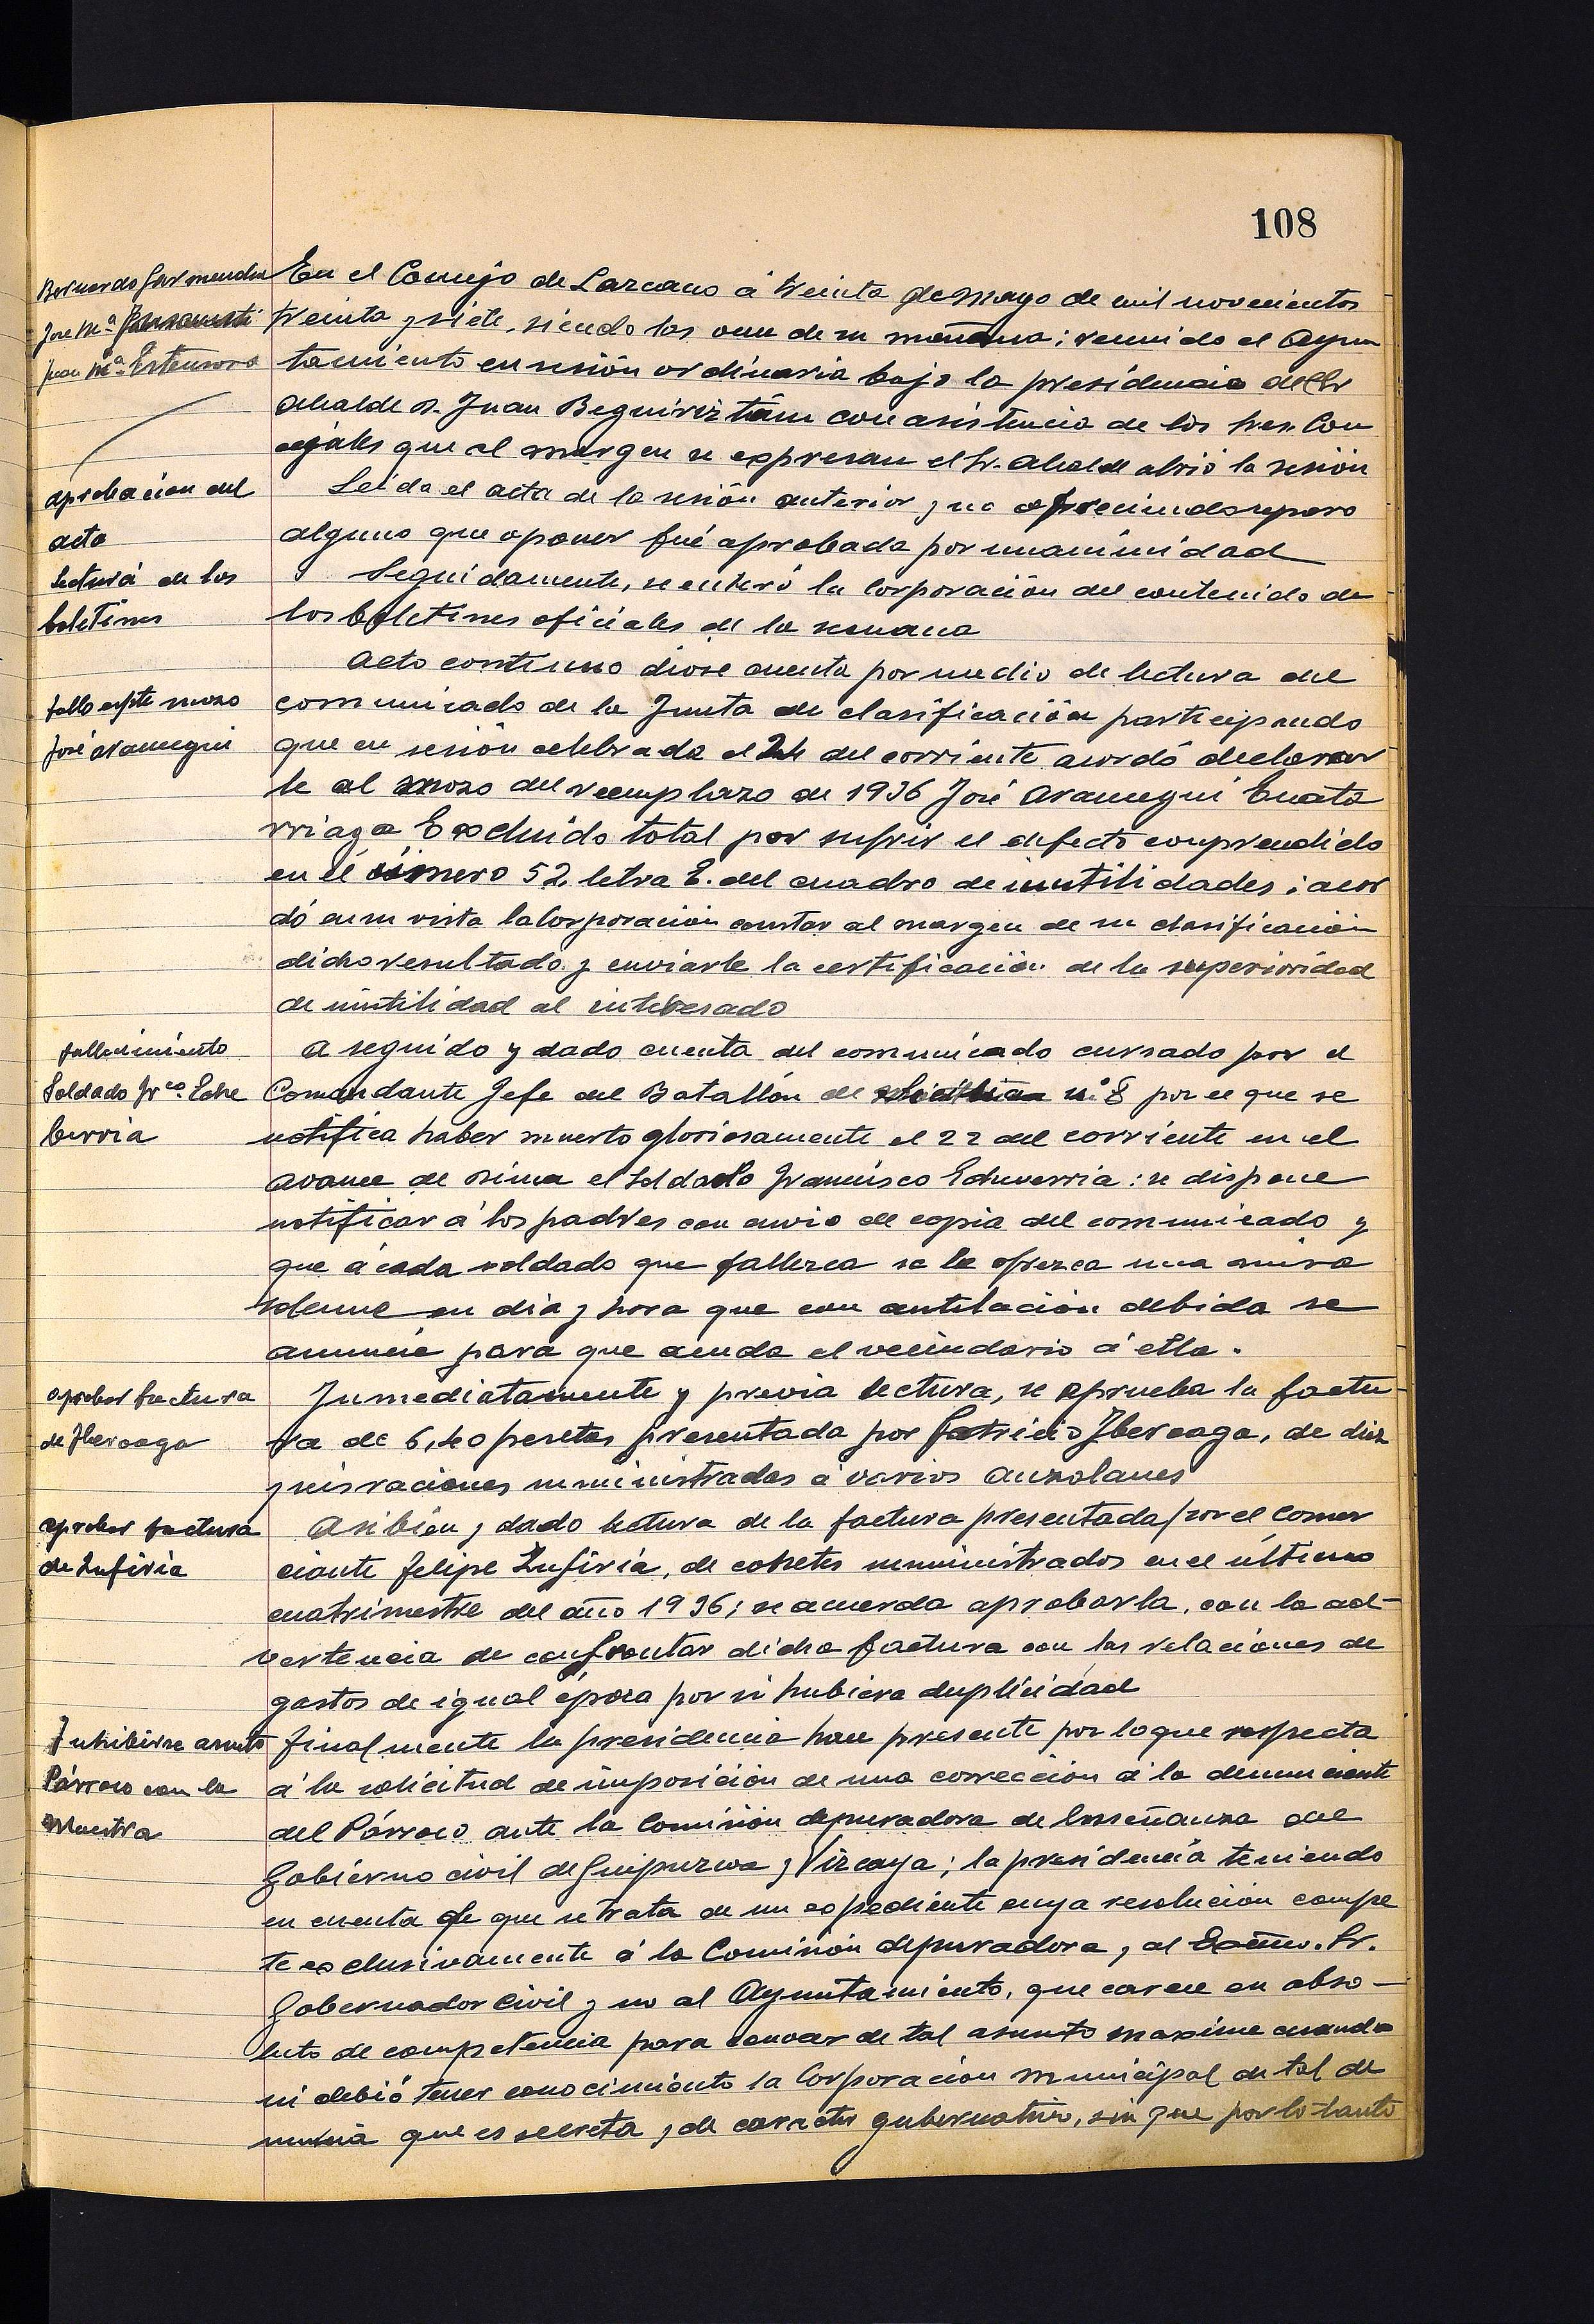 108
Bernardo Garmendia
José Mª
Juan Mª Estensoro
En el Concejo de Lazcano á treinta de Mayo de mil novecientos
treinta y siete, siendo las once de su mañana; reunido el Ayun
tamiento en sesión ordinaria bajo la presidencia del Sr
Alcalde D. Juan Beguiriztain con asistencia de los Sres. Con
cejales que al margen se expresan el Sr. Alcalde abrió la sesión
aprobacion del
acta
Leida el acta de la sesión anterior y no ofreciendo reparo
alguno que oponer fué aprobada por unanimidad
lectura de los
boletines
Seguidamente, se enteró la Corporación del contenido de
los boletines oficiales de la semana
fallo expte mozo
José Aramegui
Acto continuo diose cuenta por medio de lectura del
comunicado de la Junta de clasificación participando
que en sesión celebrada el 24 del corriente acordó declarar
le al mozo del reemplazo de 1936 José Aramegui
rriaga Excluido total por sufrir el defecto comprendido
en el número 52 letra E. del cuadro de inutilidades; acor
dó en su vista la Corporación constar al margen de su clasificación
dicho resultado y enviarle la certificación de la superioridad
de inutilidad al interesado
fallecimiento
Soldado Frco. Eche
berria
A seguido y dado cuenta del comunicado cursado por el
Comandante Jefe del Batallón de nº 8 por el que se
notifica haber muerto gloriosamente el 22 del corriente en el
avance de Dima el soldado Francisco Echeverria: se dispone
notificar á los padres con envio de copia del comunicado y
que á cada soldado que fallezca se le ofrezca una misa
solemne en dia y hora que con antelación debida se
anuncie para que acuda el vecindario á ella.
aprobar factura
de Iberoaga
Inmediatamente y previa lectura, se aprueba la factu-
ra de 6,40 pesetas presentada por Patricio Iberoaga, de diez
y seis raciones suministradas á varios
aprobar factura
de Zufiria
Asibien y dado lectura de la factura presentada por el comer
ciante Felipe Zufiria, de cohetes suministrados en el último
cuatrimestre del año 1936; se acuerda aprobarla, con la ad-
vertencia de confrontar dicha factura con las relaciones de
gastos de igual época por si hubiera duplicidad
Inhibirse asunto
Párroco con la
Maestra
Finalmente la presidencia hace presente por lo que respecta
á la solicitud de imposición de una corrección á la denunciante
del Párroco ante la Comisión depuradora de Enseñanza del
Gobierno civil de Guipuzcoa y Vizcaya; la presidencia teniendo
en cuenta de que se trata de un expediente cuya resolución compe
te exclusivamente á la Comisión depuradora, y al Excmo. Sr.
Gobernador Civil y no al Ayuntamiento, que carece en abso-
luto de competencia para conocer de tal asunto maxime cuando
ni debió tener conocimiento la Corporación municipal de tal de
nuncia que es secreta y de caracter gubernativo, sin que por lo tanto